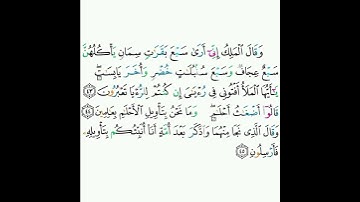 وَقَالَ ٱلْمَلِكُ إِنِّىٓ أَرَىٰ سَبْعَ بَقَرَٰتٍ سِمَانٍ يَأْكُلُهُنَّ
سَبْعٌ عِجَافٌ وَسَبْعَ سُنۢبُلَٰتٍ خُضْرٍ وَأُخَرَ يَابِسَٰتٍۖ
يَٰٓأَيُّهَا ٱلْمَلَأُ أَفْتُونِى فِى رُءْيَٰىَ إِن كُنتُمْ لِلرُّءْيَا تَعْبُرُونَ ٤٣
قَالُوٓا۟ أَضْغَٰثُ أَحْلَٰمٍۖ وَمَا نَحْنُ بِتَأْوِيلِ ٱلْأَحْلَٰمِ بِعَٰلِمِينَ ٤٤
وَقَالَ ٱلَّذِى نَجَا مِنْهُمَا وَٱدَّكَرَ بَعْدَ أُمَّةٍ أَنَا۠ أُنَبِّئُكُم بِتَأْوِيلِهِۦ
فَأَرْسِلُونِ ٤٥